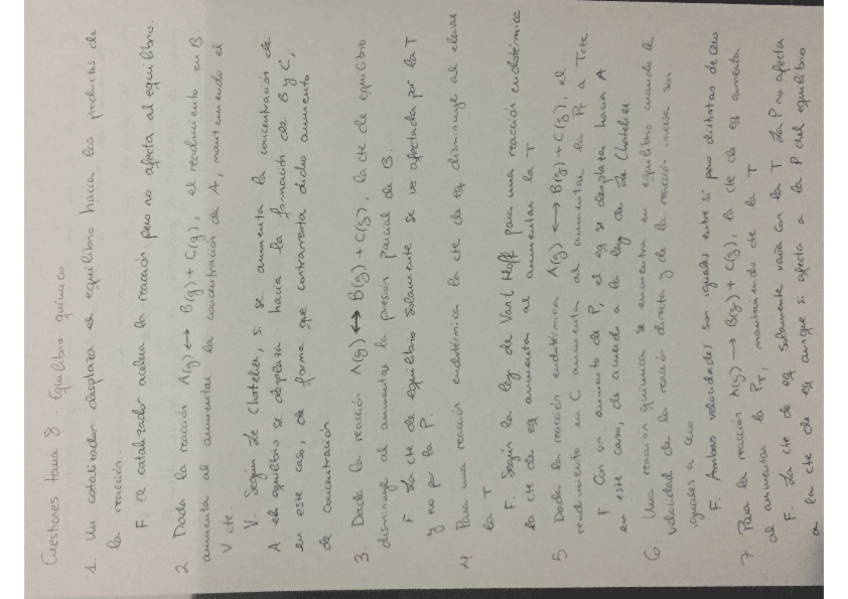 Cuestiones tema 8. Equilibrio químico
1. Un catalizador desplaza el equilibrio hacia los productos de
la reacción.
F. El catalizador acelera la reacción pero no afecta al equilibrio.
2 Dada la reacción A(g) ↔ B(g) + C(g), el rendimiento en B
aumenta al aumentar la concentración de A, manteniendo el
V cte.
V. Según Le Chatelier, si se aumenta la concentración de
A el equilibrio se desplaza hacia la formación de B y C,
en este caso, de forma que contrarresta dicho aumento
de concentración.
3 Dada la reacción A(g) ↔ B(g) + C(g), la cte de equilibrio
disminuye al aumentar la presión parcial de B.
F La cte de equilibrio solamente se ve afectada por la T
y no por la P.
4 Para una reacción endotérmica la cte de eq disminuye al elevar
la T
F. Según la ley de Van't Hoff para una reacción endotérmica
la cte de eq aumenta al aumentar la T.
5 Dada la reacción endotérmica A(g) ↔ B(g) + C(g), el
rendimiento en C aumenta al aumentar la PT a T cte
F. Con un aumento de P, el eq se desplaza hacia A
en este caso, de acuerdo a la ley de Le Chatelier
6 Una reacción química se encuentra en equilibrio cuando la
velocidad de la reacción directa y de la reacción inversa son
iguales a cero
F. Ambas velocidades son iguales entre sí pero distintas de cero
7. Para la reacción A(g) → B(g) + C(g), la cte de eq aumenta
al aumentar la PT, manteniendo cte la T
F. La cte de eq solamente varía con la T. La P no afecta
a la cte de eq aunque si afecta a la P del equilibrio